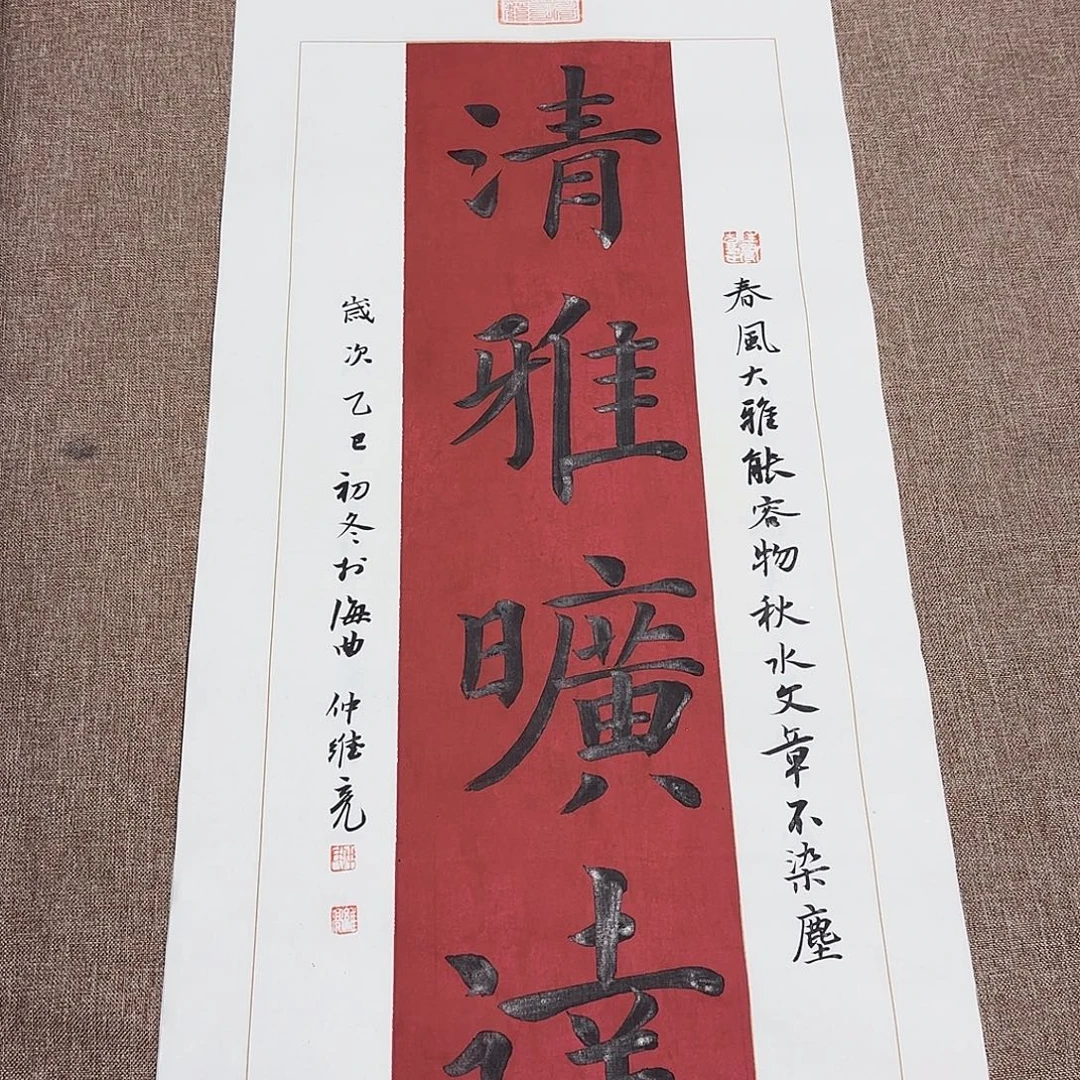 春風大雅能容物秋水文章不染塵
清雅曠達
歲次乙巳初冬於海曲
仲維亮